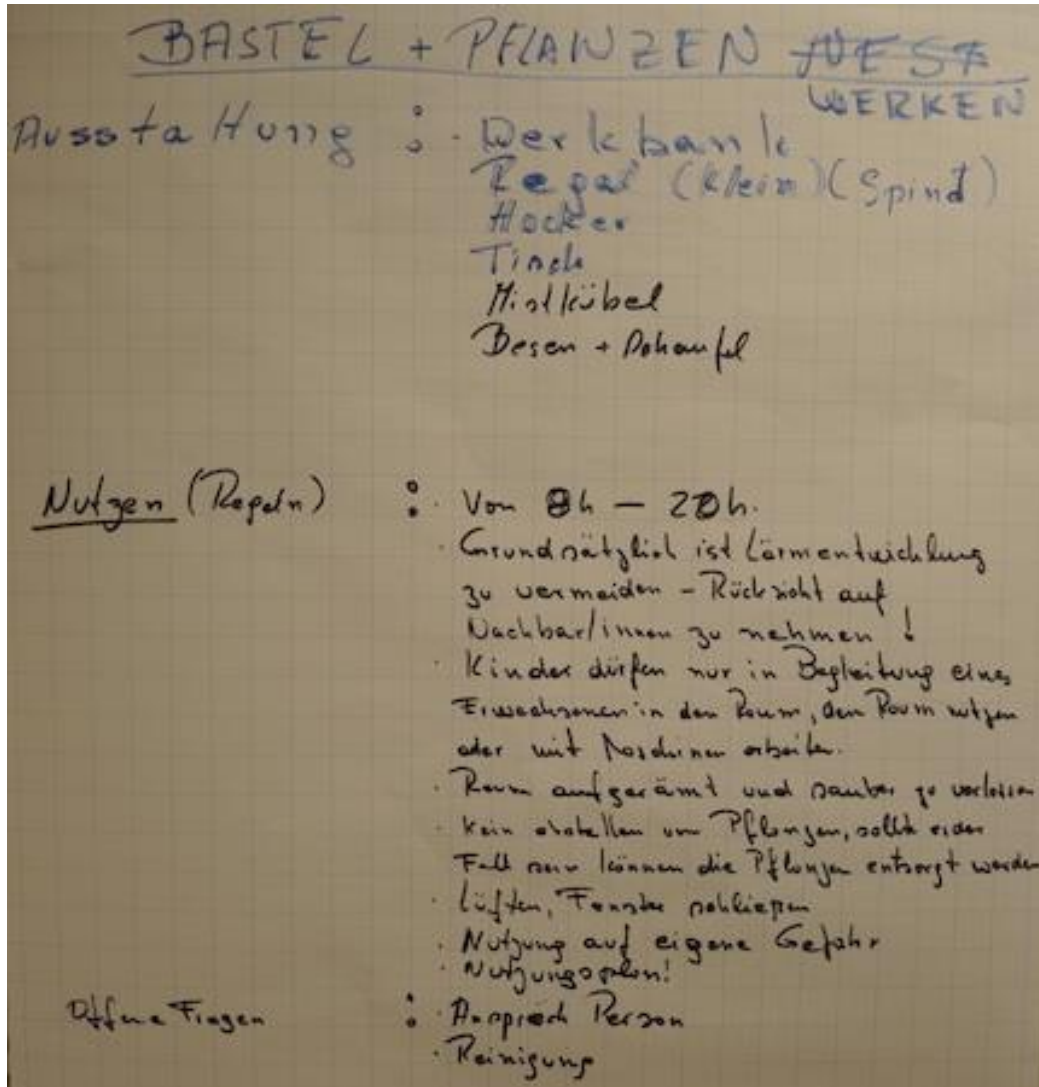 BASTEL + PFLANZEN NEST
WERKEN
Ausstattung : · Werkbank
Regal (klein) (Spind)
Hocker
Tisch
Mistkübel
Besen + Schaufel
Nutzen (Regeln) : · Von 8h — 20h.
· Grundsätzlich ist Lärmentwicklung
zu vermeiden - Rücksicht auf
Nachbar/innen zu nehmen !
· Kinder dürfen nur in Begleitung eines
Erwachsenen in den Raum, den Raum nutzen
oder mit Maschinen arbeiten.
· Raum aufgerämt und sauber zu verlassen
· Kein abstellen von Pflanzen, sollte
Fall sein können die Pflanzen entsorgt werden
· Lüften, Fenster schließen
· Nutzung auf eigene Gefahr
· Nutzungsplan!
Offene Fragen : · Ansprech Person
· Reinigung